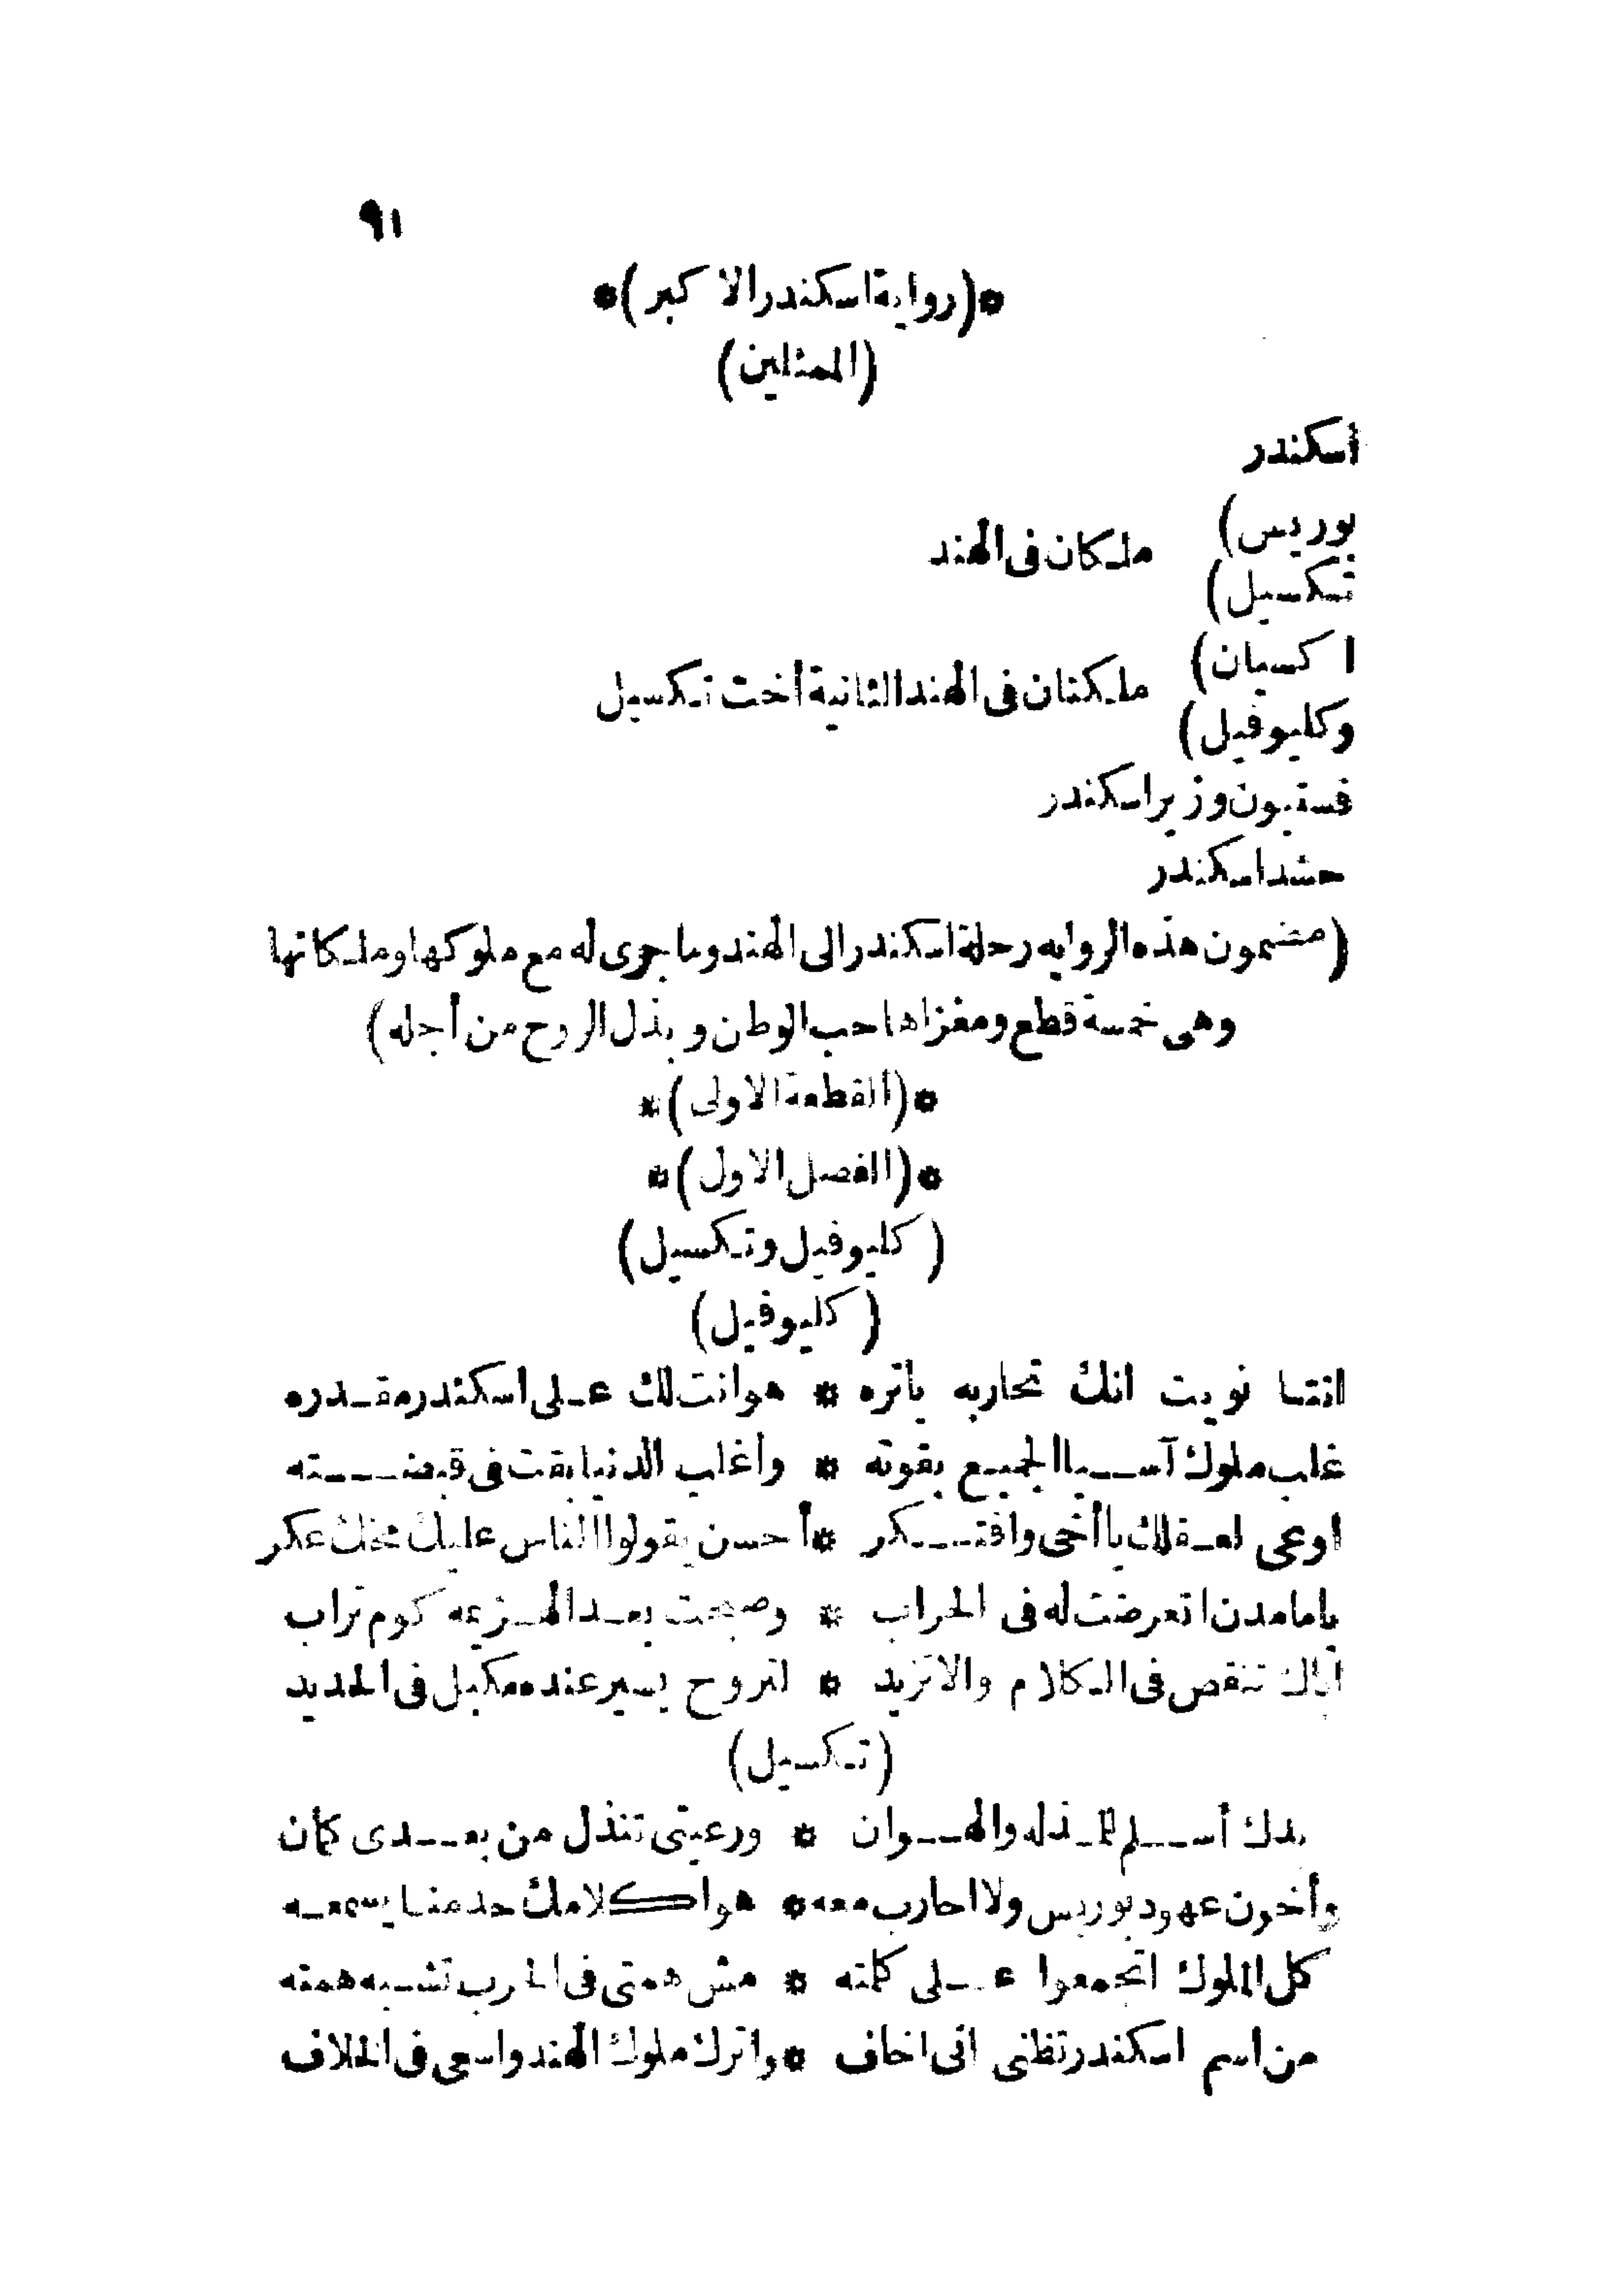 ٩١
*(رواية اسكندر الاكبر)*
(الممثلين)
اسكندر
بوريس)
ملكان فى الهند
تكسيل)
اكسيان)
ملكتان فى الهند الثانية أخت تكسيل
وكليوفيل)
فستيون وزير اسكندر
حشد اسكندر
(مضمون هذه الروايه رحلة اسكندر الى الهند وما جرى له مع ملوكها وملكاتها
وهى خمسة قطع ومغزاها حب الوطن وبذل الروح من أجله)
*(القطعة الاولى)*
*(الفصل الاول)*
(كليوفيل وتكسيل)
(كليوفيل)
انتا نويت انك تحاربه ياتره * هوانت لك على اسكندر مقدره
غلب ملوك آسيا الجميع بقوته * وأغلب الدنيا بقت فى قبضته
اوعى لعقلك يا أخى وافتكر * أحسن يقولوا الناس عليك مخك عكر
ياما مدن اتعرضت له فى الحراب * وصبحت بعد الهزيمه كوم تراب
اياك تنقص فى الكلام والا تزيد * لتروح يسير عنده مكبل فى الحديد
(تكسيل)
بدك أسلم للمذله والهوان * ورعيتى تنذل من بعدى كمان
وأخون عهود بوريس ولا احارب معه * هوا كلامك حد منا يسمعه
كل الملوك اتجمعوا على كلمته * مش همتى فى الحرب تشبه همته
من اسم اسكندر تظنى انى اخاف * واترك ملوك الهند واسعى فى الخلاف